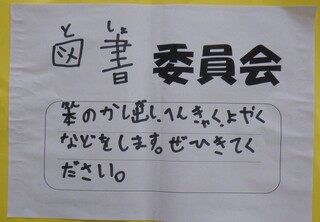 と しょ
図書委員会
本のかし出し、へんきゃく、よやく
などをします。ぜひきてく
ださい。